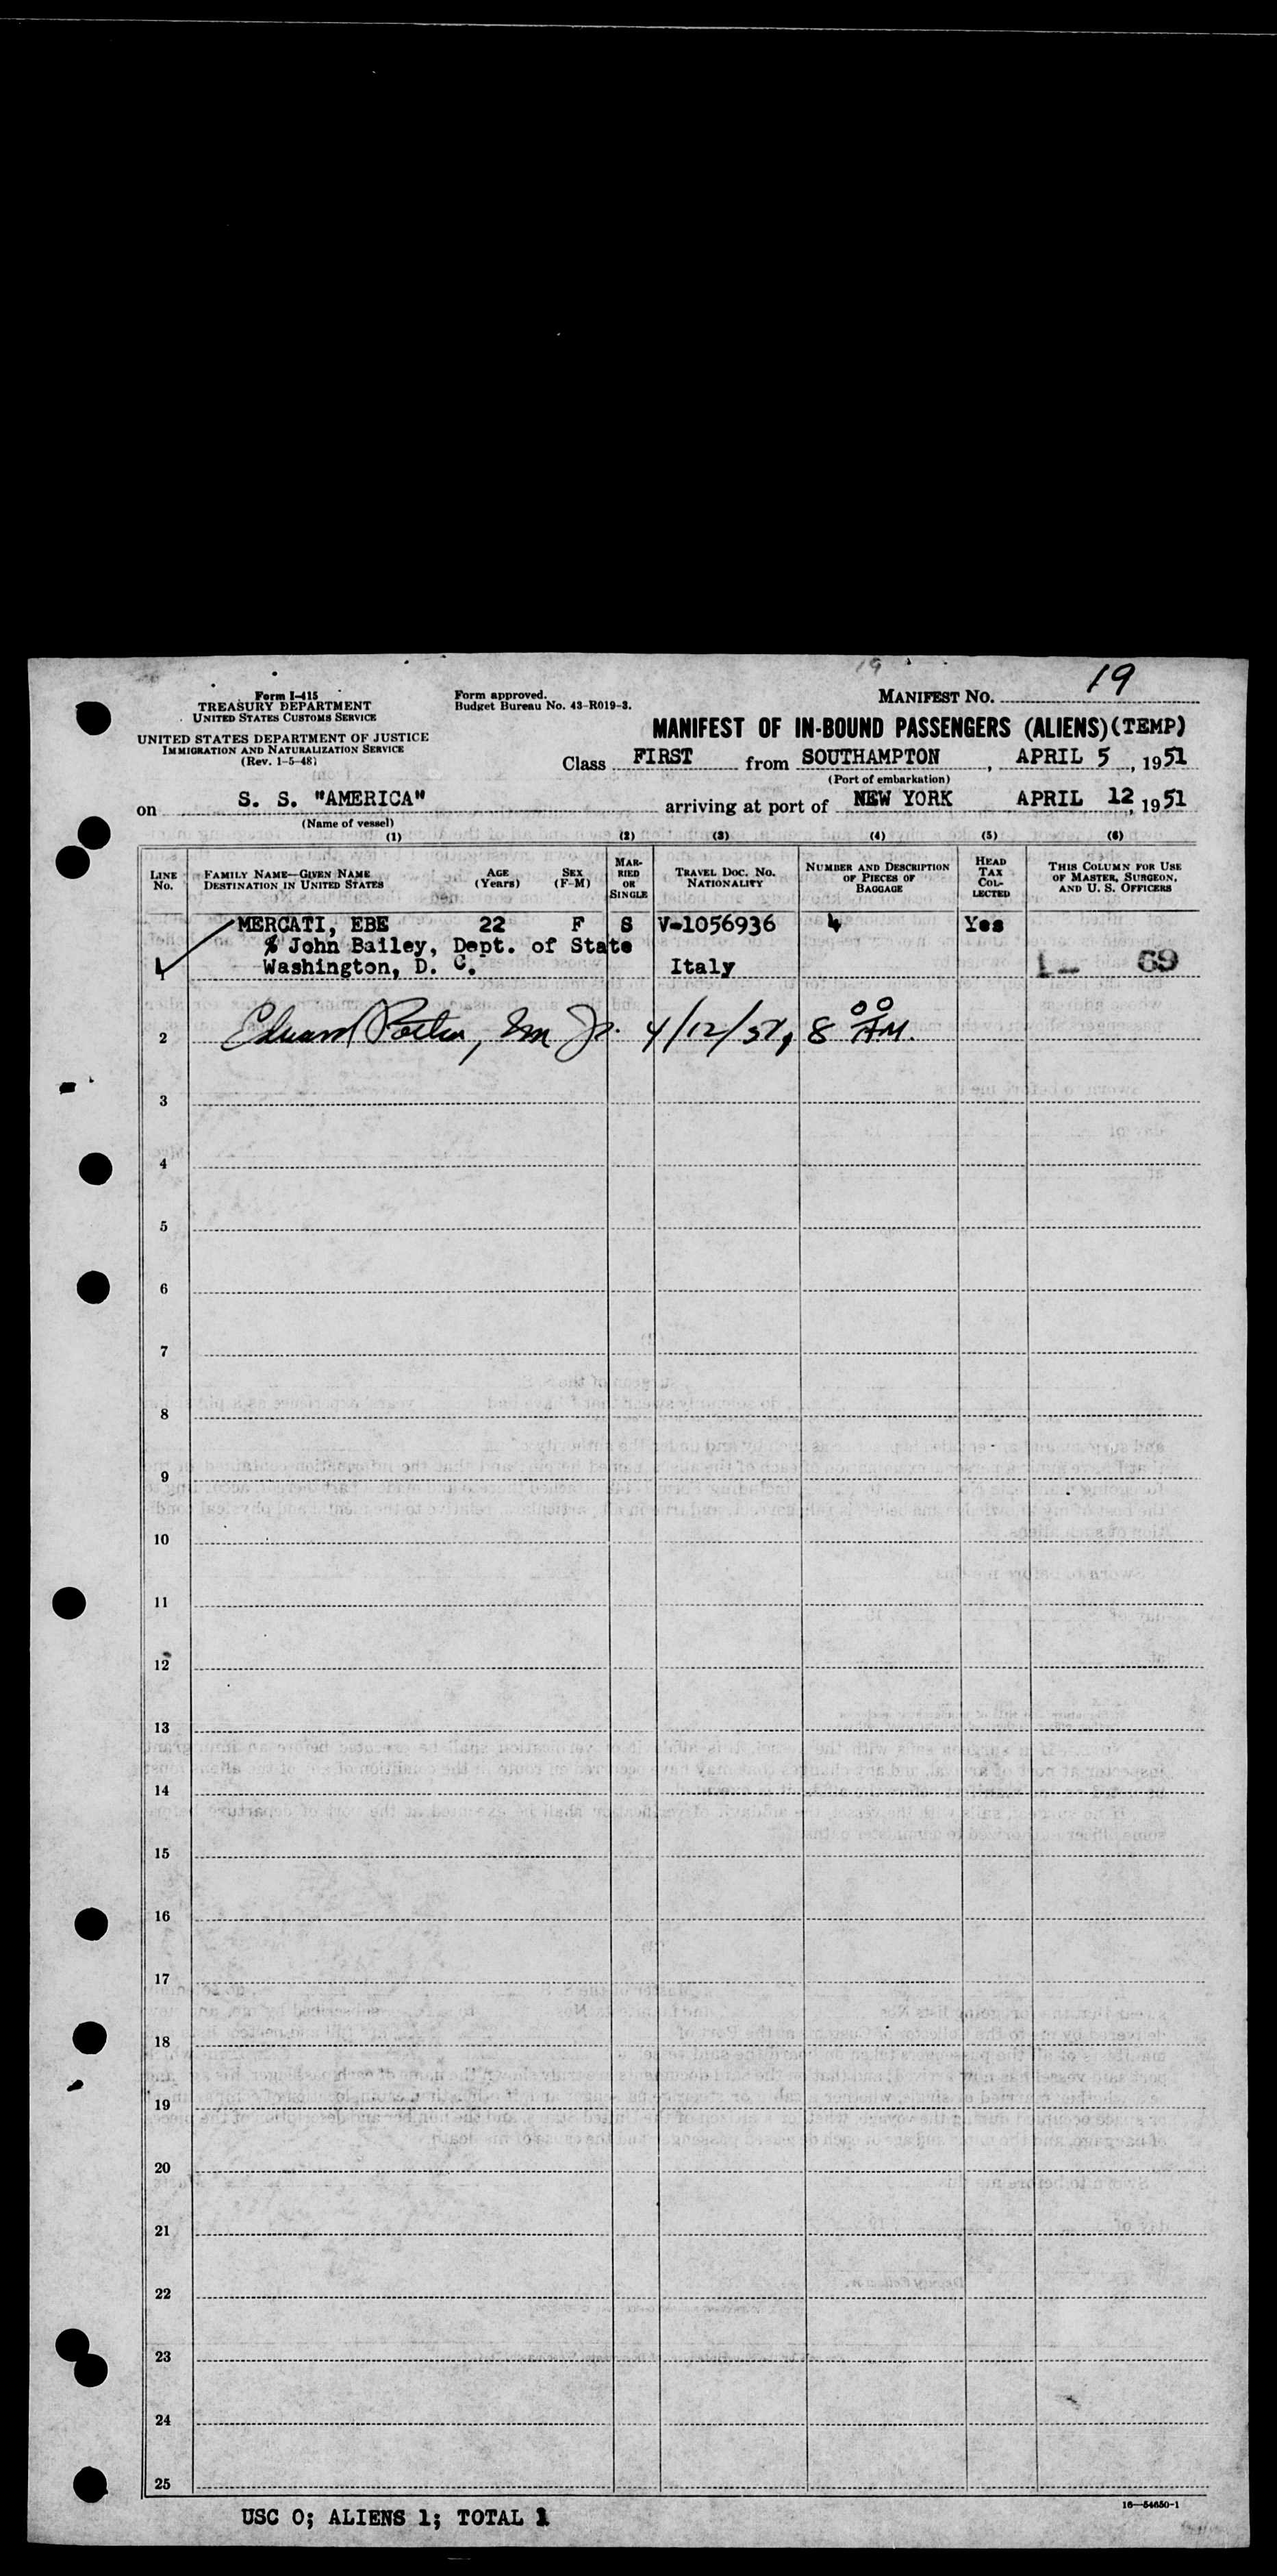 19
Form I-415
TREASURY DEPARTMENT
UNITED STATES CUSTOMS SERVICE
UNITED STATES DEPARTMENT OF JUSTICE
IMMIGRATION AND NATURALIZATION SERVICE
(Rev. 1-5-48)
Form approved.
Budget Bureau No. 43-R019-3.
MANIFEST No. 19
MANIFEST OF IN-BOUND PASSENGERS (ALIENS) (TEMP)
Class FIRST from SOUTHAMPTON, APRIL 5, 1951
(Port of embarkation)
on S. S. "AMERICA" arriving at port of NEW YORK APRIL 12, 1951
(Name of vessel)
(1) (2) (3) (4) (5) (6)
LINE No. FAMILY NAME—GIVEN NAME DESTINATION IN UNITED STATES AGE (Years) SEX (F-M) MARRIED OR SINGLE TRAVEL DOC. No. NATIONALITY NUMBER AND DESCRIPTION OF PIECES OF BAGGAGE HEAD TAX COLLECTED THIS COLUMN FOR USE OF MASTER, SURGEON, AND U. S. OFFICERS
MERCATI, EBE 22 F S V-1056936 4 Yes
% John Bailey, Dept. of State
1 Washington, D. C. Italy 69
2 4/12/51, 8 00 AM.
3
4
5
6
7
8
9
10
11
12
13
14
15
16
17
18
19
20
21
22
23
24
25
USC 0; ALIENS 1; TOTAL 1
16—54650-1